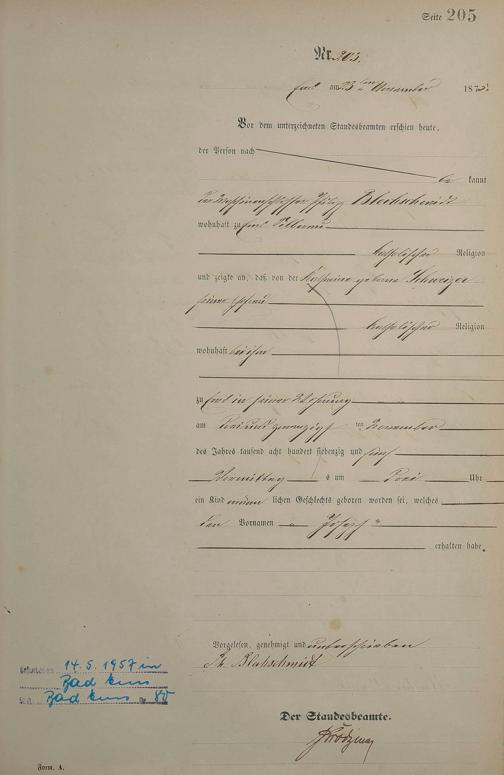 Seite 205
Nr. 203.
Ems am 23 ten November 187
Vor dem unterzeichneten Standesbeamten erschien heute,
der Person nach
be kannt
der Maschinenschlosser Philipp Blechschmidt
wohnhaft zu Ems
katholischer Religion
und zeigte an, daß von der Katharina geborne Schweizer
seiner Ehefrau
katholischer Religion
wohnhaft bei ihm
zu Ems in seiner Wohnung
am ten November
des Jahres tausend acht hundert siebenzig und fünf
Vormittag s um Uhr
ein Kind männ lichen Geschlechts geboren worden sei, welches
den Vornamen Joseph
erhalten habe.
Vorgelesen, genehmigt und unterschrieben
Ph. Blechschmidt
14.5.1957 in
Bad Ems
Bad Ems 80
Der Standesbeamte.
Form. A.